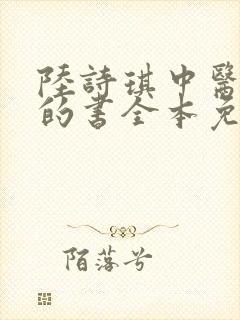 陸詩琪中醫
的書全本免
陌落兮